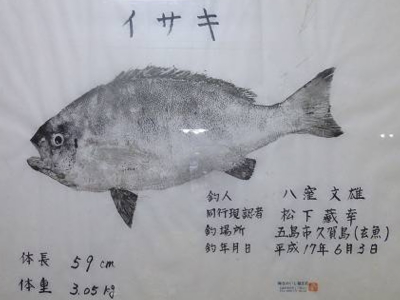 イサキ
釣人 八窪 文雄
同行現認者 松下 蔵幸
釣場所 五島市久賀島(玄魚)
釣年月日 平成17年6月3日
体長 59cm
体重 3.05kg